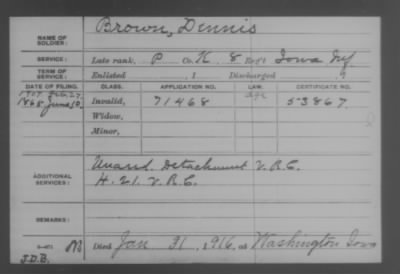 Brown, Dennis
NAME OF SOLDIER:
SERVICE: Late rank, P Co. K, 8 Reg't Iowa Inf.
TERM OF SERVICE: Enlisted , 1 Discharged , 1
DATE OF FILING. CLASS. APPLICATION NO. LAW. CERTIFICATE NO.
1907 Feb. 27. Age
1868 June 10. Invalid, 71468 53867
Widow,
Minor,
ADDITIONAL SERVICES: Unasd. Detachment V.R.C.
H. 21. V.R.C.
REMARKS:
Died Jan 31, 1916, at Washington Iowa
J.D.B.